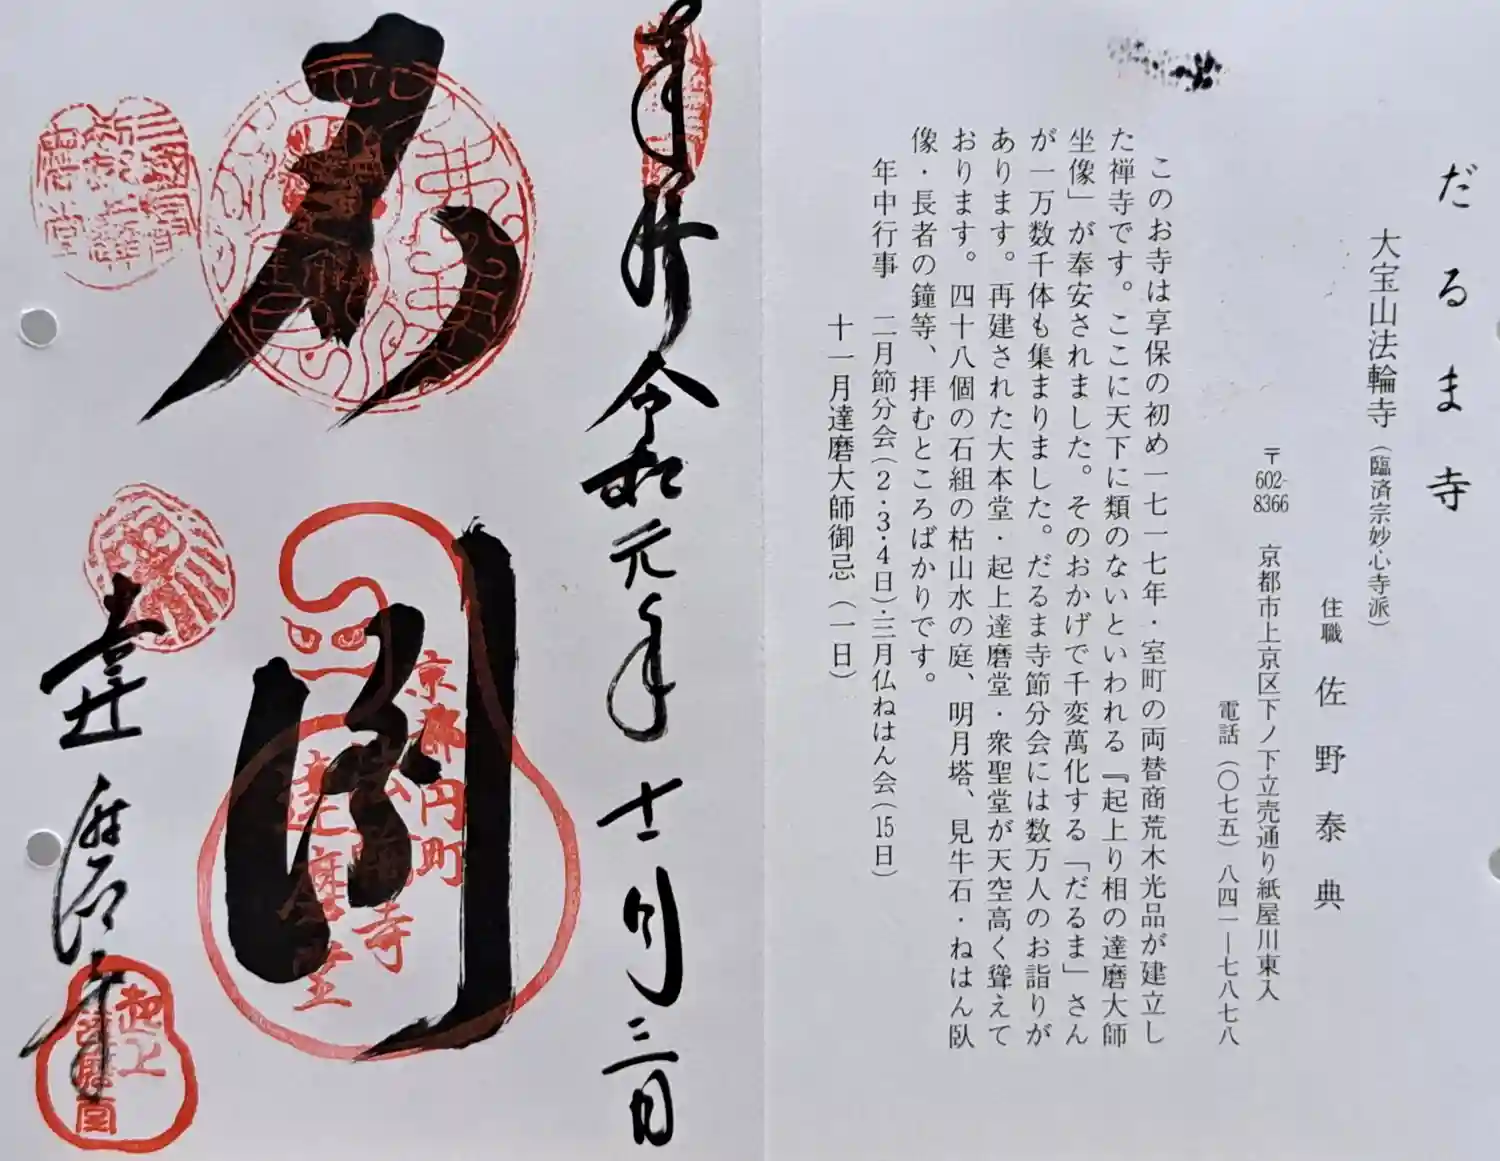 だるま寺
大宝山法輪寺(臨済宗妙心寺派)
住職 佐野泰典
〒602-8366 京都市上京区下ノ下立売通り紙屋川東入
電話(〇七五)八四一―七八七八
このお寺は享保の初め一七一七年・室町の両替商荒木光品が建立し
た禅寺です。ここに天下に類のないといわれる『起上り相の達磨大師
坐像」が奉安されました。そのおかげで千変萬化する「だるま」さん
が一万数千体も集まりました。だるま寺節分会には数万人のお詣りが
あります。再建された大本堂・起上達磨堂・衆聖堂が天空高く聳えて
おります。四十八個の石組の枯山水の庭、明月塔、見牛石・ねはん臥
像・長者の鐘等、拝むところばかりです。
年中行事 二月節分会(2・3・4日)・三月仏ねはん会(15日)
十一月達磨大師御忌(一日)
奉拝 令和元年十二月三日
京都円町
法輪寺
達磨堂
起上